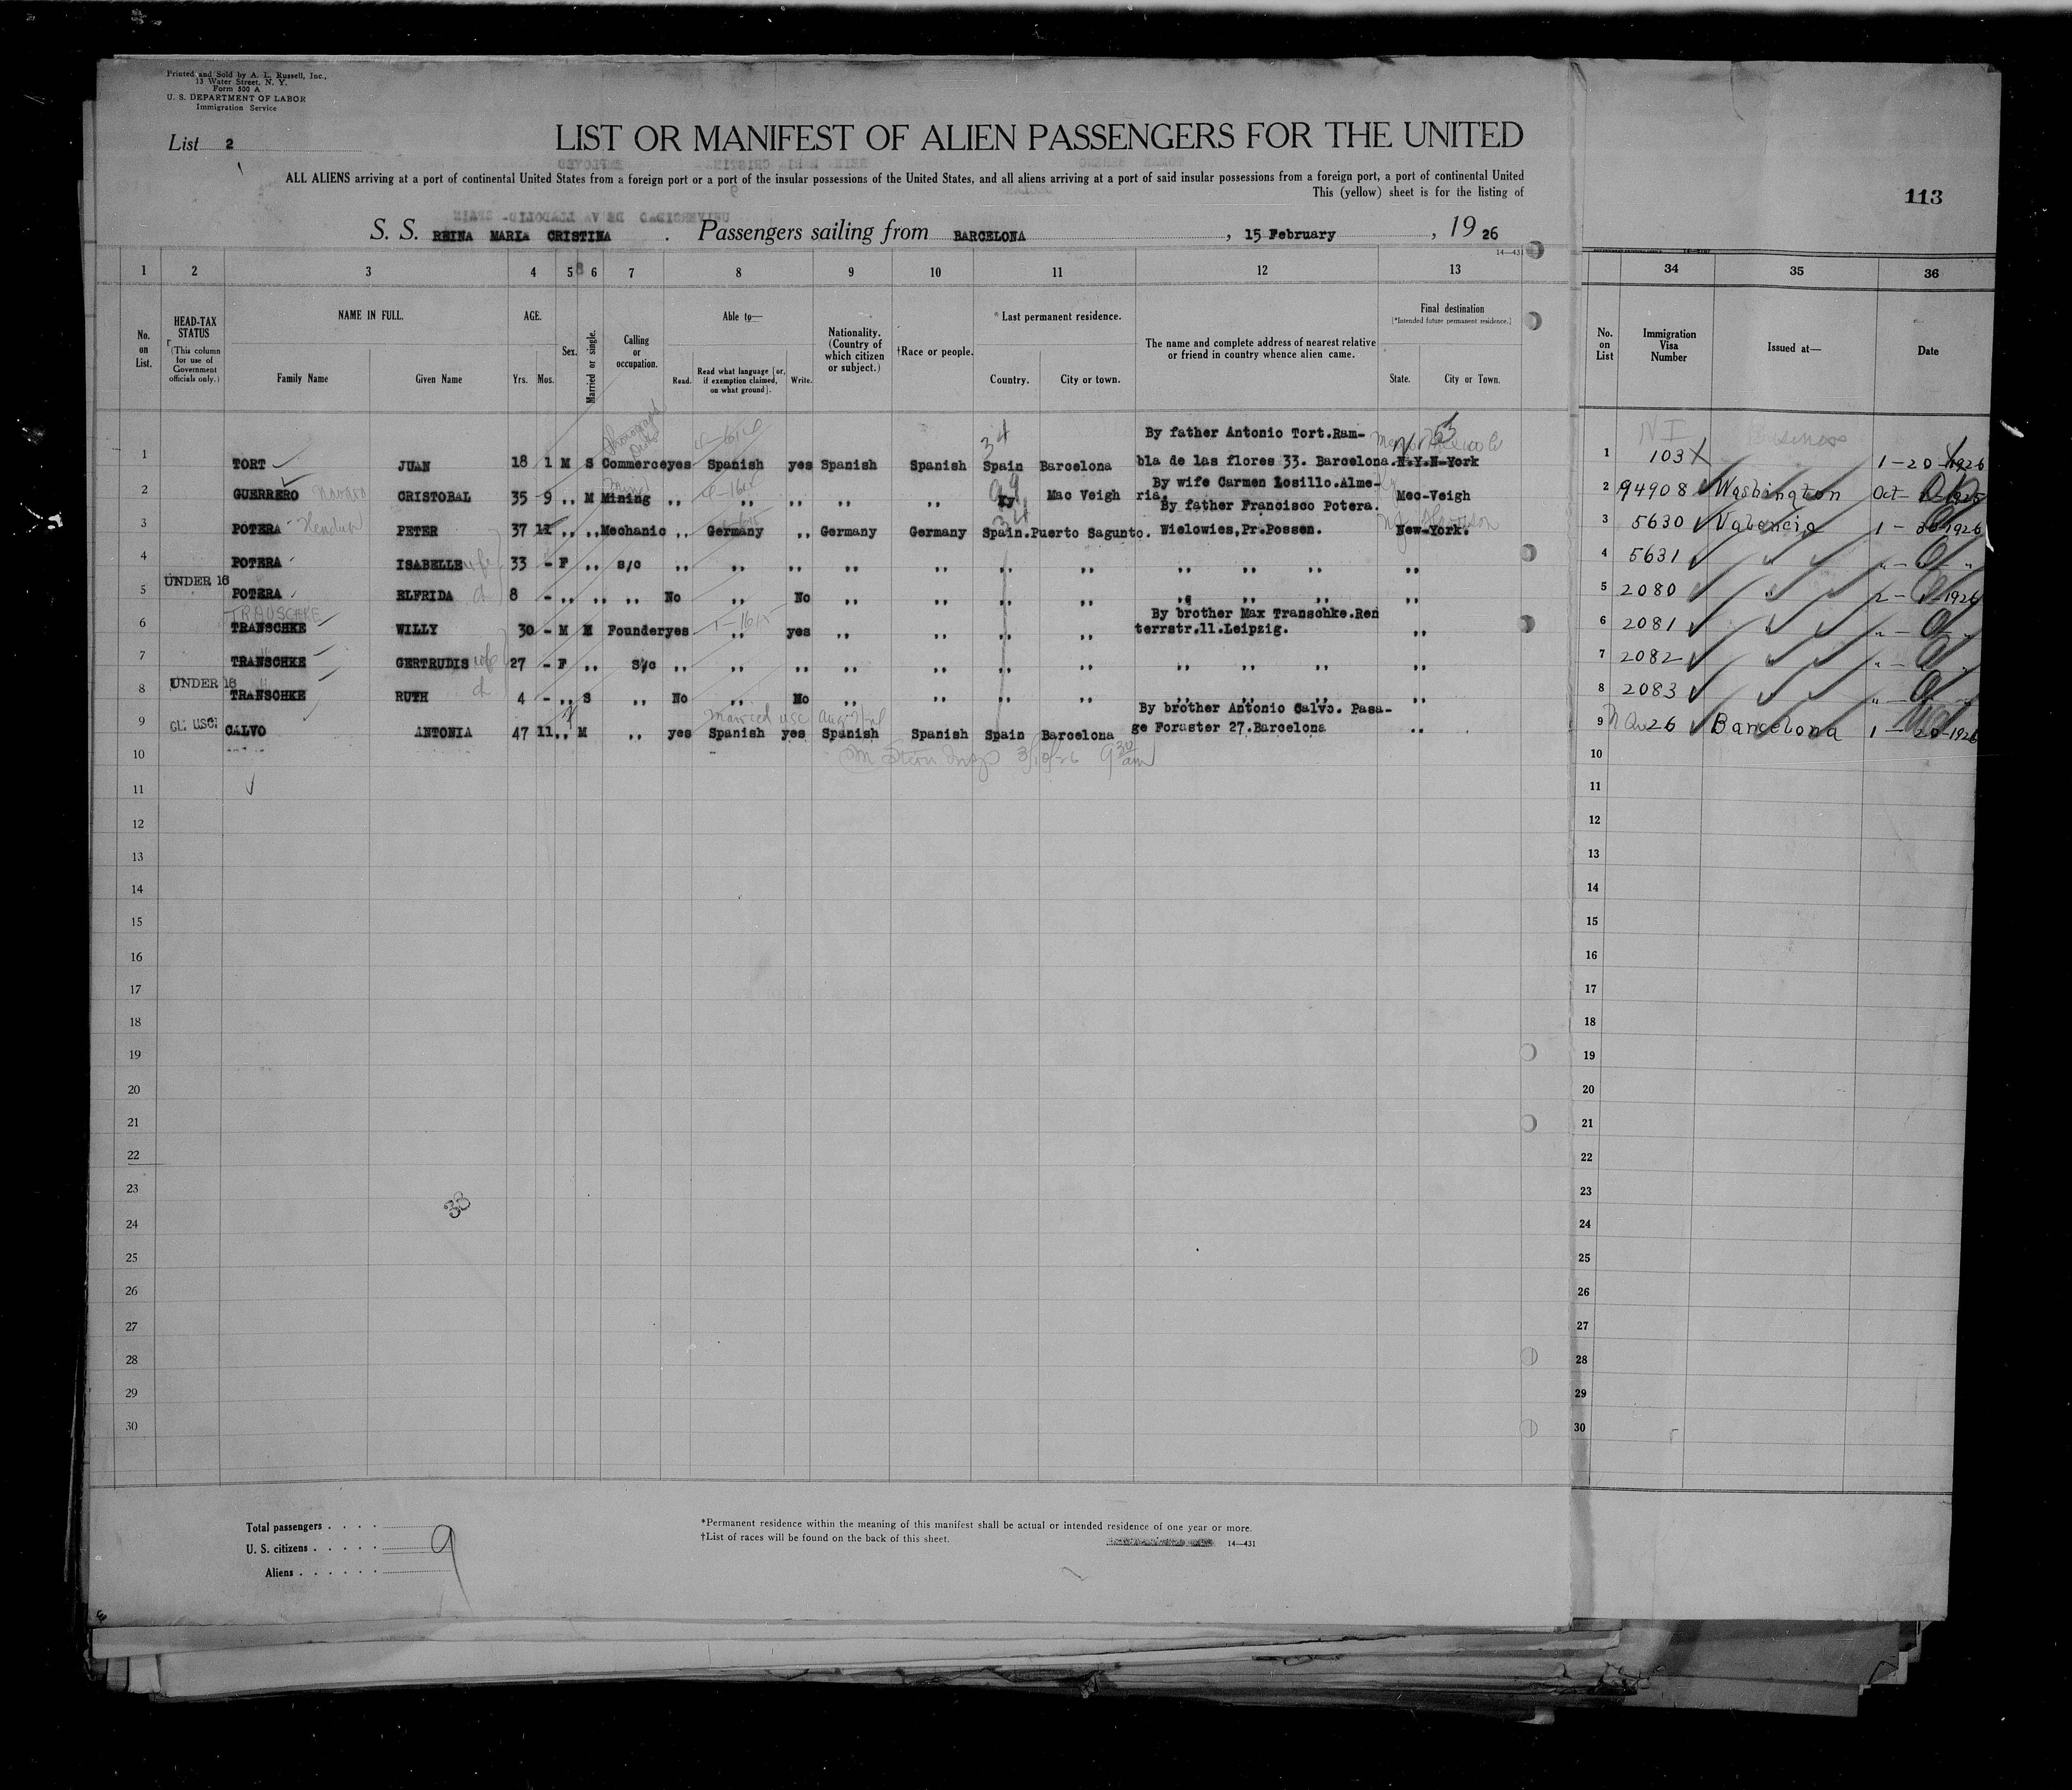 Printed and Sold by A. L. Russell, Inc.,
13 Water Street, N. Y.
Form 500 A
U. S. DEPARTMENT OF LABOR
Immigration Service
List 2
LIST OR MANIFEST OF ALIEN PASSENGERS FOR THE UNITED
ALL ALIENS arriving at a port of continental United States from a foreign port or a port of the insular possessions of the United States, and all aliens arriving at a port of said insular possessions from a foreign port, a port of continental United
This (yellow) sheet is for the listing of
113
S. S. REINA MARIA CRISTINA . Passengers sailing from BARCELONA , 15 February , 19 26
14—431
1 2 3 4 5 6 7 8 9 10 11 12 13 34 35 36
No. on List.
HEAD-TAX STATUS
(This column for use of Government officials only.)
NAME IN FULL.
Family Name Given Name
AGE.
Yrs. Mos.
Sex.
Married or single.
Calling or occupation.
Able to—
Read. Read what language [or, if exemption claimed, on what ground]. Write.
Nationality. (Country of which citizen or subject.)
†Race or people.
*Last permanent residence.
Country. City or town.
The name and complete address of nearest relative or friend in country whence alien came.
Final destination
[*Intended future permanent residence.]
State. City or Town.
No. on List
Immigration Visa Number
Issued at—
Date
NI Business
By father Antonio Tort.Ram-
1 TORT JUAN 18 1 M S Commerce yes Spanish yes Spanish Spanish Spain Barcelona bla de las flores 33. Barcelona. N.Y.N-York 1 103 1-20-1926
By wife Carmen Losillo.Alme-
2 GUERRERO CRISTOBAL 35 9 ,, M Mining ,, ,, ,, ,, ,, Ky. Mac Veigh ria. Mec-Veigh 2 94908 Washington Oct- 1925
By father Francisco Potera.
3 POTERA PETER 37 11 ,, ,, Mechanic ,, Germany ,, Germany Germany Spain. Puerto Sagunto. Wielowies,Pr.Possen. New-York. 3 5630 Valencia 1- 1926
4 POTERA ISABELLE wife 33 - F ,, S/C ,, ,, ,, ,, ,, ,, ,, ,, ,, ,, ,, 4 5631
UNDER 16
5 POTERA ELFRIDA 8 - ,, ,, ,, No ,, No ,, ,, ,, ,, ,, ,, ,, ,, 5 2080 2- 1926
TRAUSCHKE
By brother Max Transchke.Ren
6 TRANSCHKE WILLY 30 - M M Founder yes ,, yes ,, ,, ,, ,, terrstr.11.Leipzig. ,, 6 2081
7 TRANSCHKE GERTRUDIS wife 27 - F ,, S/c ,, ,, ,, ,, ,, ,, ,, ,, ,, ,, ,, 7 2082
UNDER 16
8 TRANSCHKE RUTH 4 - ,, S ,, No ,, No ,, ,, ,, ,, ,, ,, ,, 8 2083
married usc
By brother Antonio Calvo. Pasa-
9 CALVO ANTONIA 47 11 ,, M ,, yes Spanish yes Spanish Spanish Spain Barcelona ge Foraster 27.Barcelona ,, 9 26 Barcelona 1-20-1926
10 10
11 11
12 12
13 13
14 14
15 15
16 16
17 17
18 18
19 19
20 20
21 21
22 22
23 23
33
24 24
25 25
26 26
27 27
28 28
29 29
30 30
Total passengers . . . .
U. S. citizens . . . . . 9
Aliens . . . . . .
*Permanent residence within the meaning of this manifest shall be actual or intended residence of one year or more.
†List of races will be found on the back of this sheet.
14—431